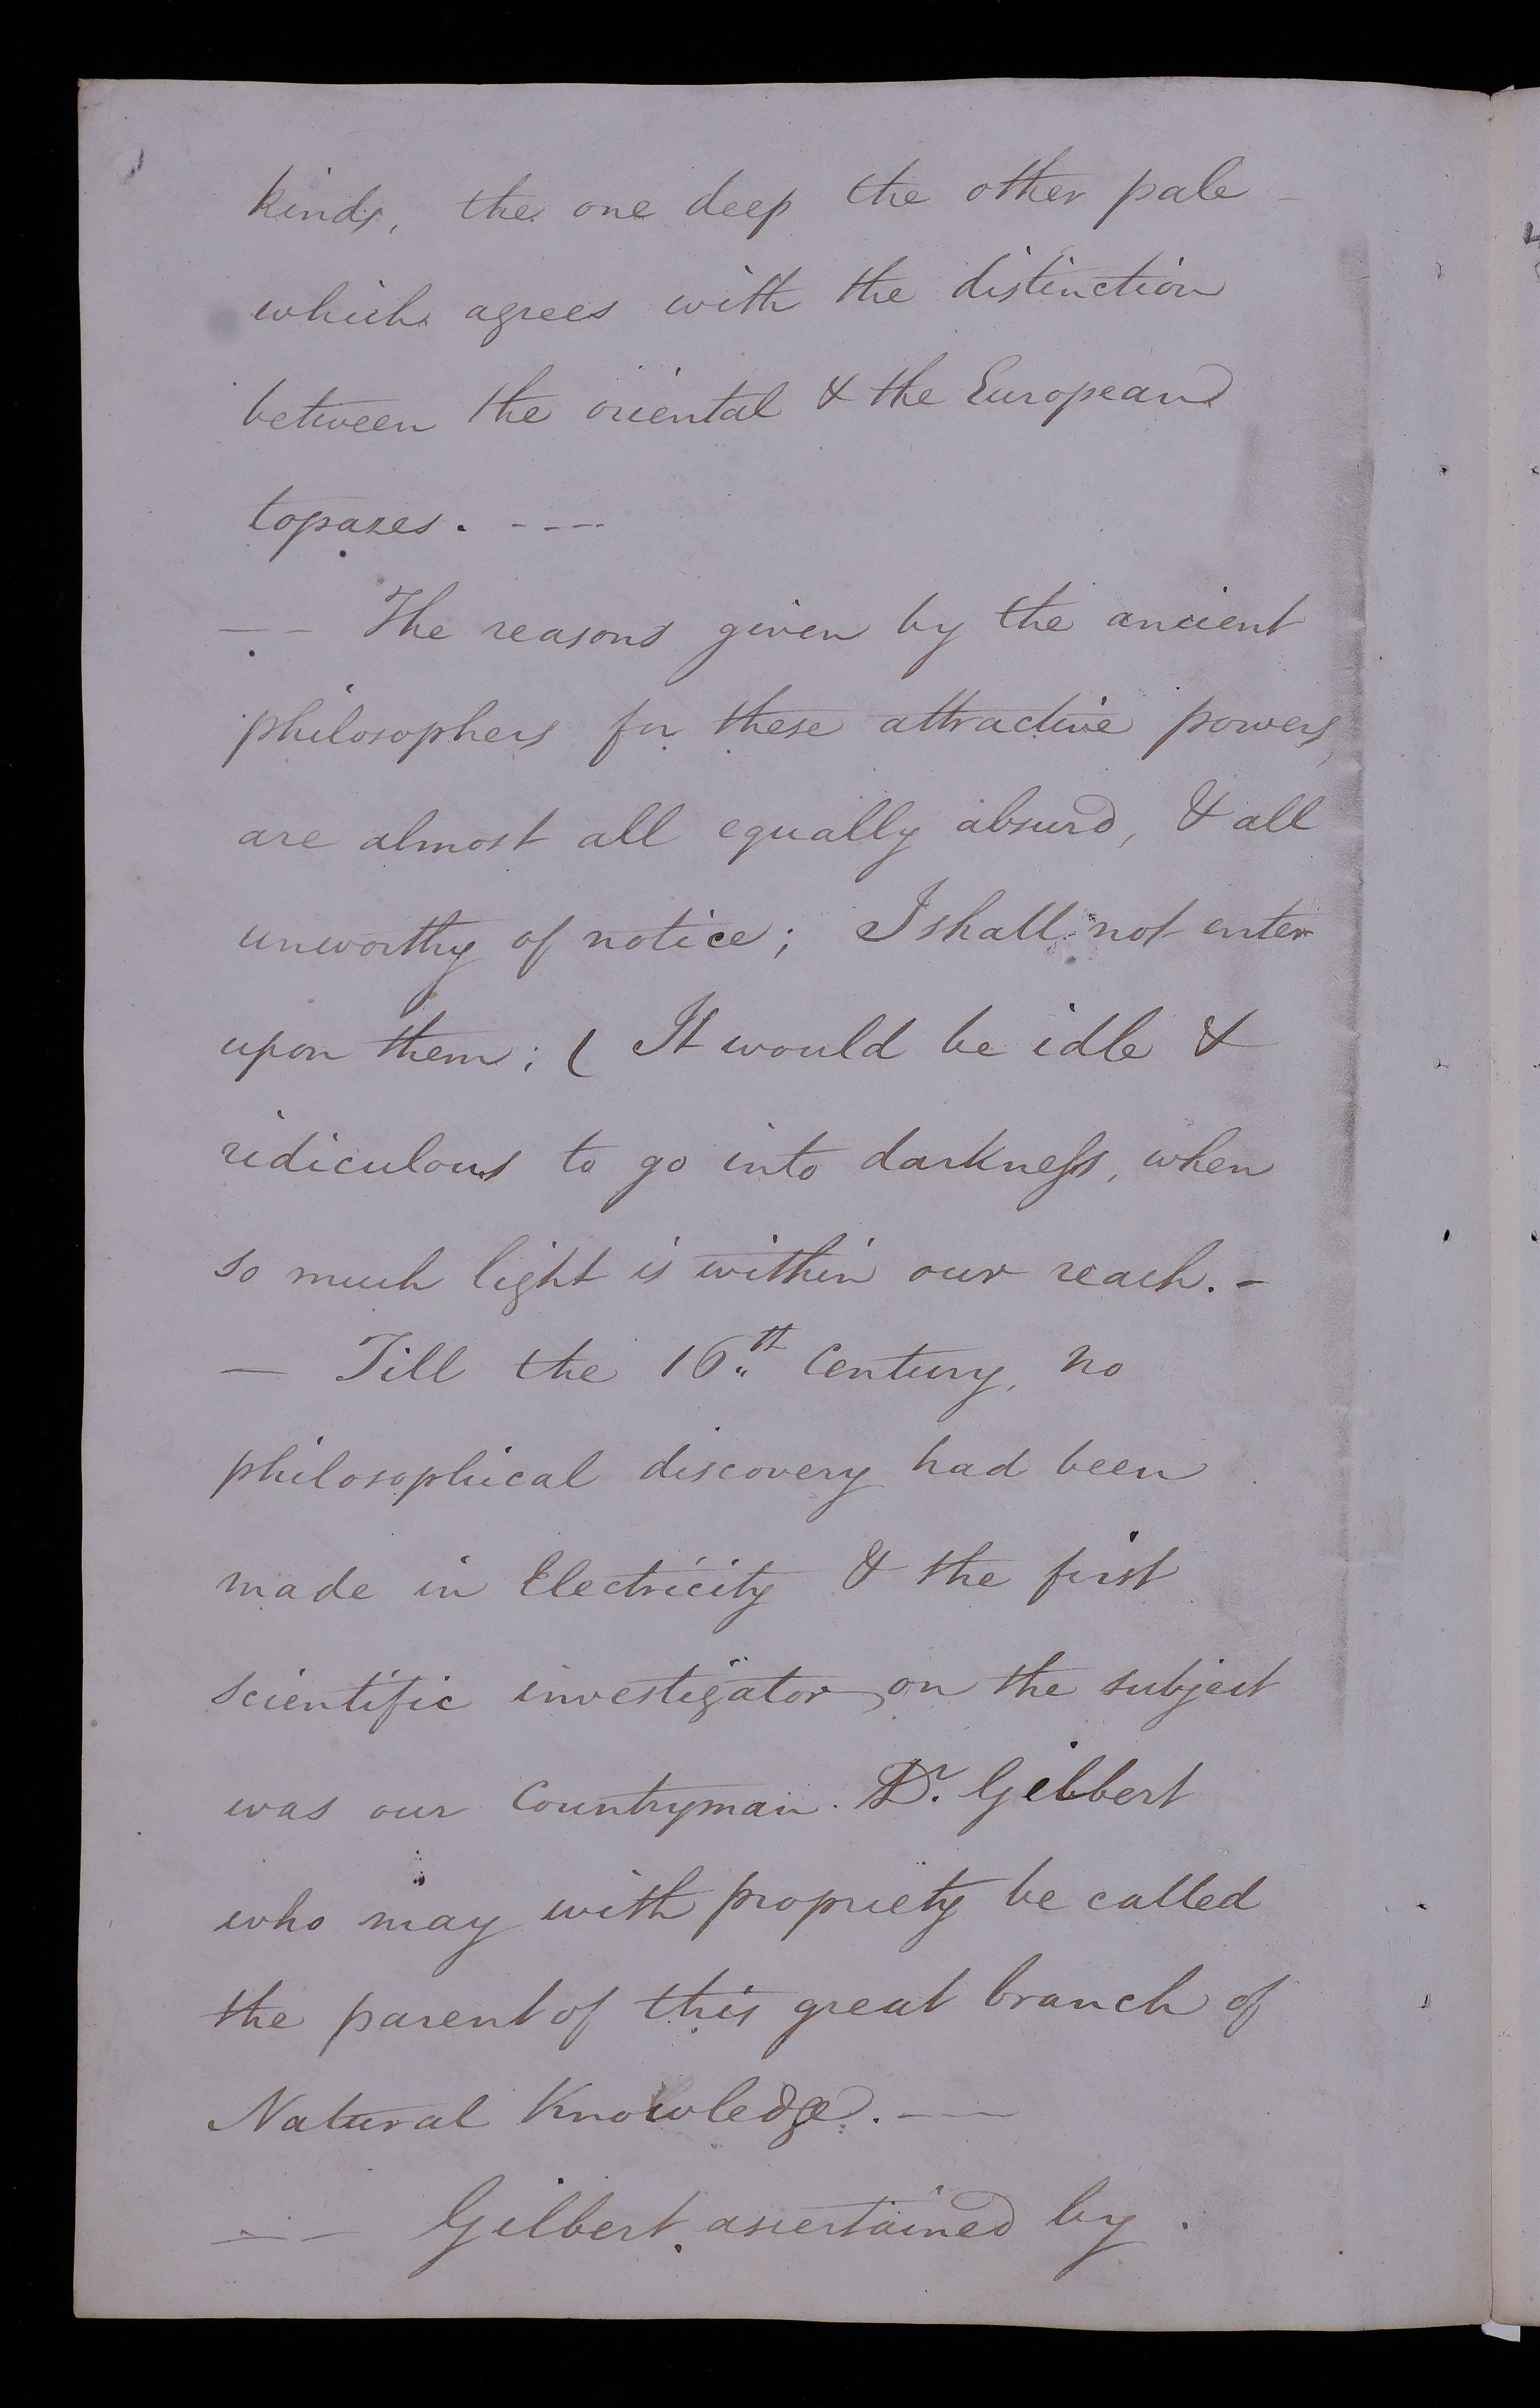 kinds, the one deep the other pale -
which agrees with the distinction
between the oriental & the European
topazes. - - - -
— — The reasons given by the ancient
philosophers for these attractive powers,
are almost all equally absurd, & all
unworthy of notice; I shall not enter
upon them; ( It would be idle &
ridiculous to go into darkness, when
so much light is within our reach. -
— Till the 16th Century, no
philosophical discovery had been
made in Electricity & the first
scientific investigator on the subject
was our Countryman. Dr. Gilbert
who may with propriety be called
the parent of this great branch of
Natural Knowledge. — —
— — Gilbert ascertained by